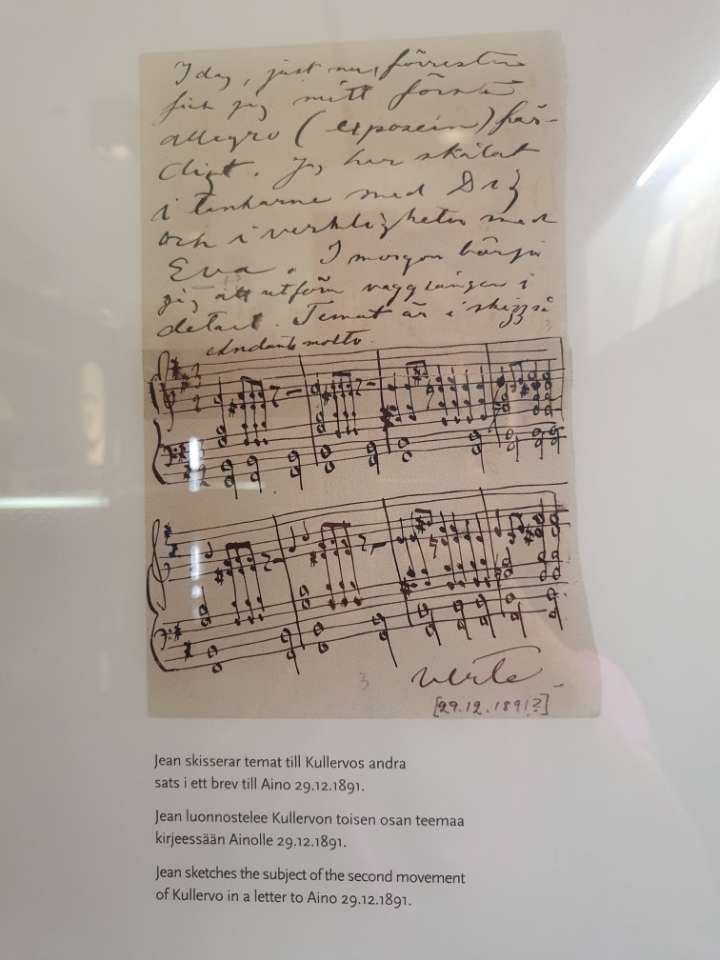 Idag, just nu, förresten
fick jag mitt första
allegro (exposein) fär-
digt. Jag har skålat
i tankarne med Dig
och i verkligheten med
Eva. I morgon börjar
jag att utföra vaggsången i
detalj. Temat är i skizze
Andante molto.
verte
3
[29.12.1891?]
Jean skisserar temat till Kullervos andra
sats i ett brev till Aino 29.12.1891.
Jean luonnostelee Kullervon toisen osan teemaa
kirjeessään Ainolle 29.12.1891.
Jean sketches the subject of the second movement
of Kullervo in a letter to Aino 29.12.1891.